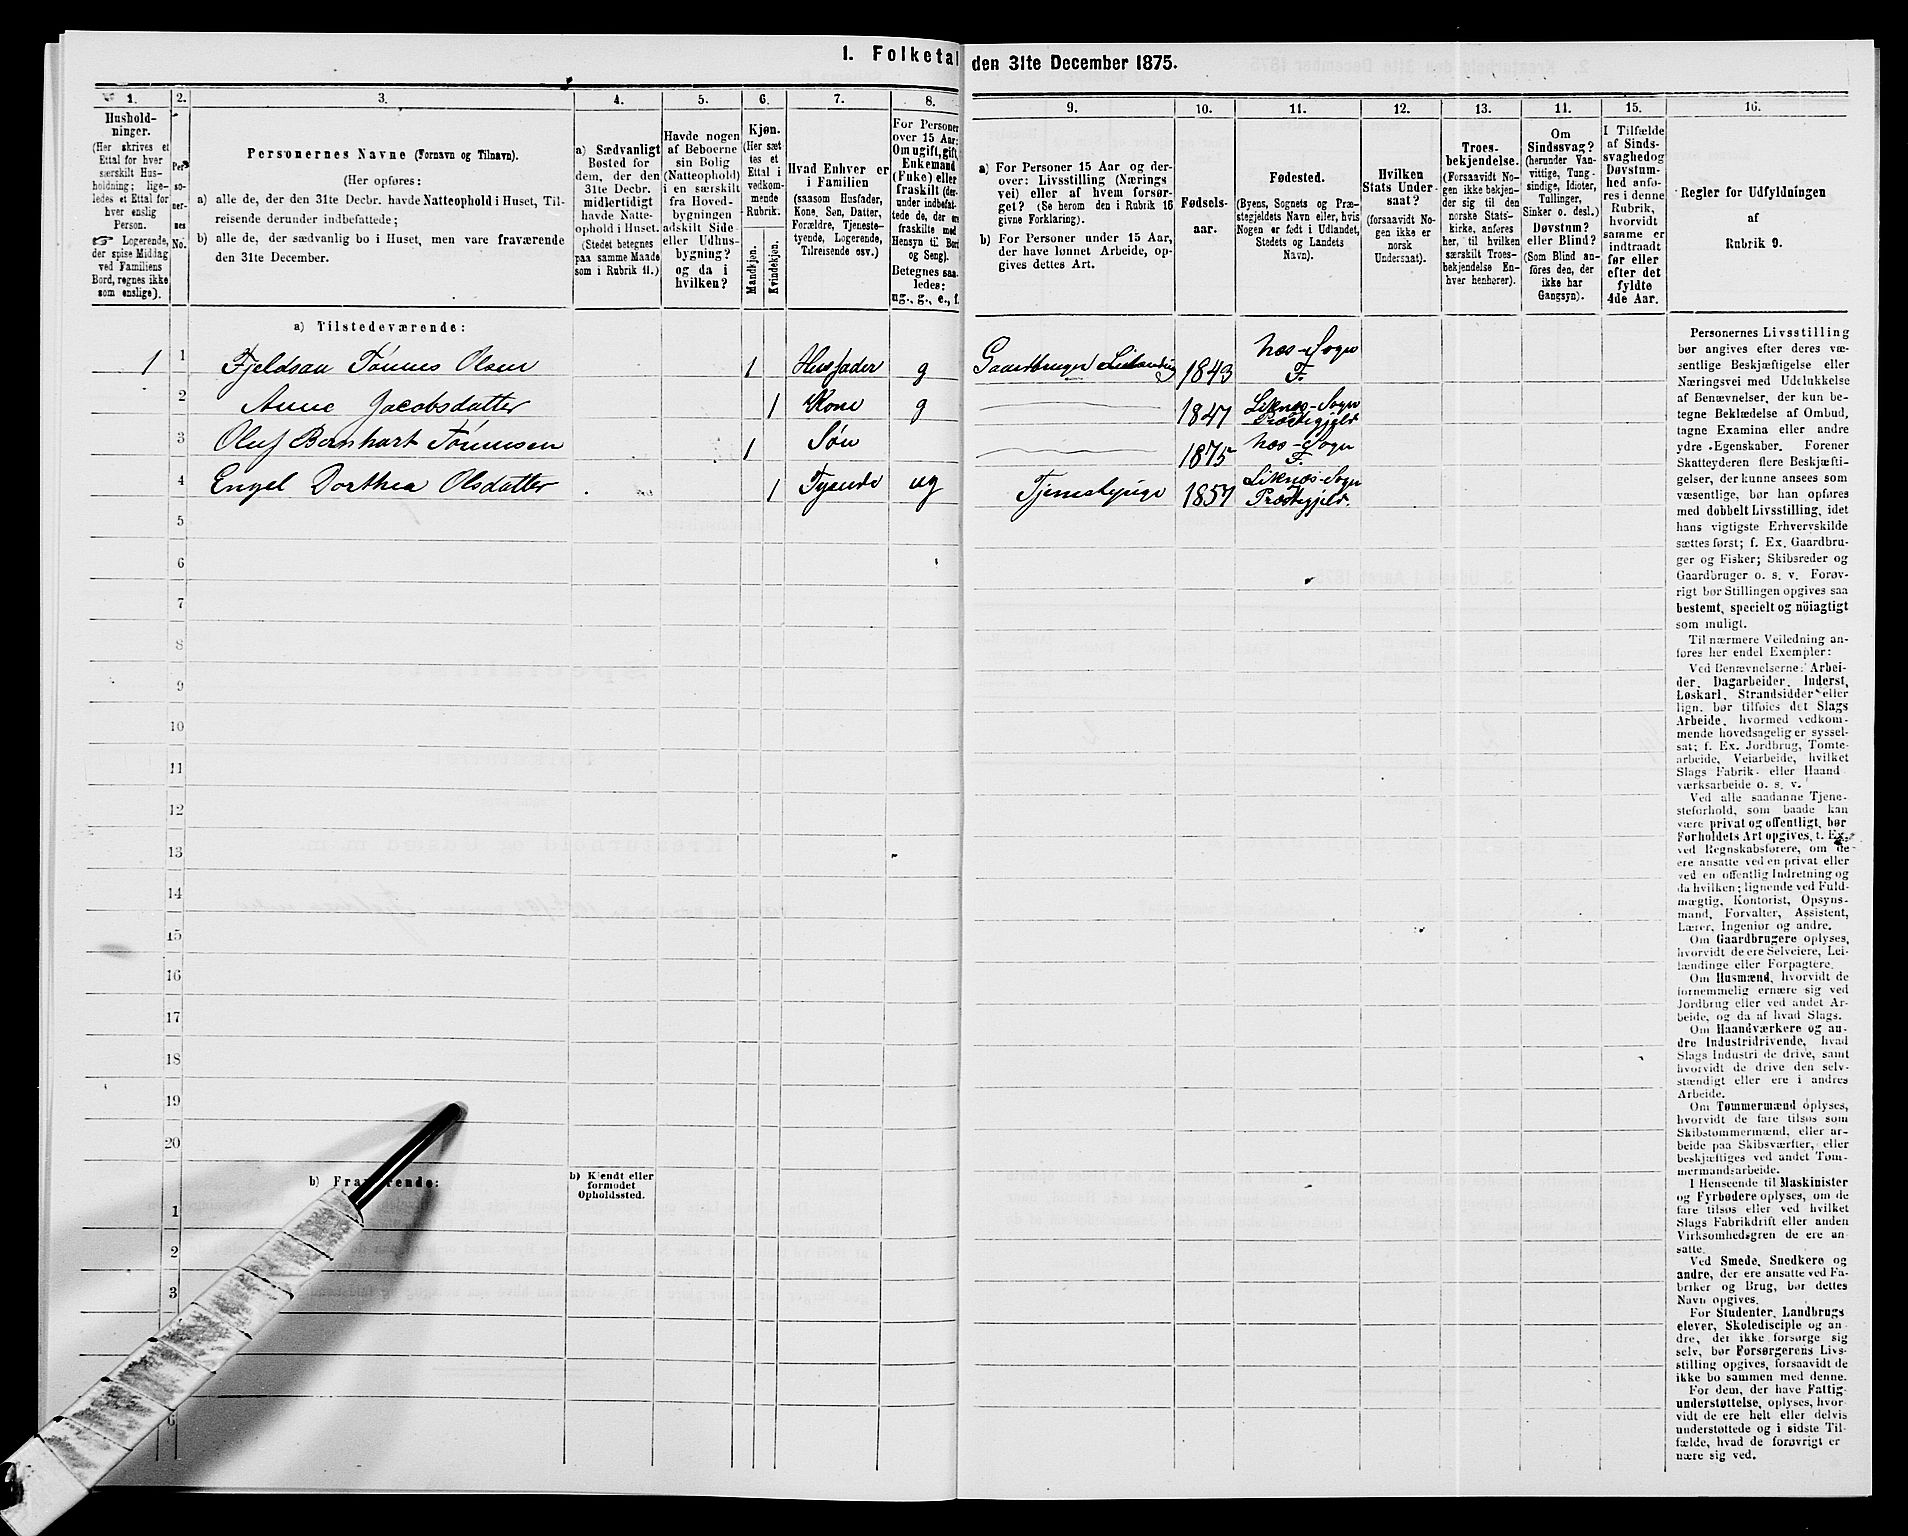 1. Folketal
den 31te December 1875.
1.
Hushold-
ninger.
(Her skrives et
Ettal for hver
særskilt Hus-
holdning; lige-
ledes et Ettal for
hver enslig
Person.
☞ Logerende,
der spise Middag
ved Familiens
Bord, regnes ikke
som enslige).
2.
Per-
so-
ner-
nes
No.
3.
Personernes Navne (Fornavn og Tilnavn).
(Her opføres:
a) alle de, der den 31te Decbr. havde Natteophold i Huset, Til-
reisende derunder indbefattede;
b) alle de, der sædvanlig bo i Huset, men vare fraværende
den 31te December.
4.
a) Sædvanligt
Bosted for
dem, der den
31te Decbr.
midlertidigt
havde Natte-
ophold i Huset.
(Stedet betegnes
paa samme Maade
som i Rubrik 11.)
5.
Havde nogen
af Beboerne
sin Bolig
(Natteophold)
i en særskilt
fra Hoved-
bygningen
adskilt Side-
eller Udhus-
bygning?
og da i
hvilken?
6.
Kjøn.
(Her sæt
tes et
Ettal i
vedkom-
mende
Rubrik.
Mandkjøn.
Kvindekjøn.
7.
Hvad Enhver er
i Familien
(saasom Husfader,
Kone, Søn, Datter,
Forældre, Tjeneste-
tyende, Logerende,
Tilreisende osv.)
8.
For Personer
over 15 Aar:
Om ugift, gift,
Enkemand
(Fuke) eller
fraskilt (der-
under indbefat-
tede de, der ere
fraskilte med
Hensyn til Bord
og Seng).
Betegnes saa-
ledes:
ug., g., e., f.
9.
a) For Personer 15 Aar og der-
over: Livsstilling (Nærings
vei) eller af hvem forsør-
get? (Se herom den i Rubrik 16
givne Forklaring).
b) For Personer under 15 Aar,
der have lønnet Arbeide, op-
gives dettes Art.
10.
Fødsels-
aar.
11.
Fødested.
(Byens, Sognets og Præ-
stegjeldets Navn eller, hvis
Nogen er født i Udlandet,
Stedets og Landets
Navn).
12.
Hvilken
Stats Under-
saat?
(forsaavidt No-
gen ikke er
norsk
Undersaat).
13.
Troes-
bekjendelse.
(Forsaavidt No-
gen ikke bekjen-
der sig til den
norske Stats-
kirke, anføres
her, til hvilken
særskilt Troes-
bekjendelse En-
hver henhører).
11.
Om
Sindssvag?
(herunder Van-
vittige, Tung-
sindige, Idioter,
Tullinger,
Sinker o. desl.)
Døvstum?
eller Blind?
(Som Blind an-
føres den, der
ikke har
Gangsyn).
15.
I Tilfælde
af Sinds-
svaghedog
Døvstum-
hed anfø-
res i denne
Rubrik,
hvorvidt
samme er
indtraadt
før eller
efter det
fyldte
4de Aar.
16.
Regler for Udfyldningen
af
Rubrik 9.
a) Tilstedeværende:
1 1 Fjeldsaa Tønnes Olsen 1 Husfader g Gaardbruger Leilænding 1843 Næs-Sogn F.
2 Anne Jacobsdatter 1 Kone g 1847 Liknæs-Sogn Præstegjeld
3 Oluf Bernhart Tønnesen 1 Søn 1875 Næs-Sogn F.
4 Engel Dorthea Olsdatter 1 Tyende ug Tjenestepige 1857 Liknæs-Sogn Præstegjeld.
5
6
7
8
9
10
11
12
13
14
15
16
17
18
19
20
b) Fra
rende:
b) Kjendt eller
formodet
Opholdssted.
1
2
3
6
Personernes Livsstilling
bør angives efter deres væ-
sentlige Beskjæftigelse eller
Næringsvei med Udelukkelse
af Benævnelser, der kun be-
tegne Beklædelse af Ombud,
tagne Examina eller andre
ydre Egenskaber. Forener
Skatteyderen flere Beskjæfti-
gelser, der kunne ansees som
væsentlige, bør han opføres
med dobbelt Livsstilling, idet
hans vigtigste Erhvervskilde
sættes først; f. Ex. Gaardbru-
ger og Fisker; Skibsreder og
Gaardbruger o. s. v. Forøv-
rigt bør Stillingen opgives saa
bestemt, specielt og nöiagtigt
som muligt.
Til nærmere Veiledning an-
føres her endel Exempler:
Ved Benævnelserne: Arbei-
der, Dagarbeider, Inderst,
Løskarl, Strandsidder eller
lign. bør tilføies det Slags
Arbeide, hvormed vedkom-
mende hovedsagelig er syssel-
sat; f. Ex. Jordbrug, Tomte-
arbeide, Veiarbeide, hvilket
Slags Fabrik- eller Haand
værksarbeide o. s. v.
Ved alle saadanne Tjene-
steforhold, som baade kan
være privat og offentligt, bør
Forholdets Art opgives, t. Ex.
ved Regnskabsførere, om de
ere ansatte ved en privat eller
ved en offentlig Indretning og
da hvilken; lignende ved Fuld-
mægtig, Kontorist, Opsyns-
mand, Forvalter, Assistent,
Lærer, Ingeniør og andre.
Om Gaardbrugere oplyses,
hvorvidt de ere Selveiere, Lei-
lændinge eller Forpagtere.
Om Husmænd, hvorvidt de
fornemmelig ernære sig ved
Jordbrug eller ved andet Ar-
beide, og da af hvad Slags.
Om Haandværkere og an-
dre Industridrivende, hvad
Slags Industri de drive, samt
hvorvidt de drive den selv-
stændigt eller ere i andres
Arbeide.
Om Tømmermænd oplyses,
hvorvidt de fare tilsøs som
Skibstømmermænd, eller ar-
beide paa Skibsværfter, eller
beskjæftiges ved andet Tøm-
mermandsarbeide.
I Henseende til Maskinister
og Fyrbødere oplyses, om de
fare tilsøs eller ved hvilket
Slags Fabrikdrift eller anden
Virksomhedsgren de ere an-
satte.
Ved Smede, Snedkere og
andre, der ere ansatte ved Fa-
briker og Brug, bør dettes
Navn opgives.
For Studenter, Landbrugs
elever, Skoledisciple og an
dre, der ikke forsørge sig
selv, bør Forsørgerens Livs-
stilling opgives, forsaavidt de
ikke bo sammen med denne.
For dem, der have Fattig-
understøttelse, oplyses, hvor-
vidt de ere helt eller delvis
understøttede og i sidste Til-
fælde, hvad de forøvrigt er
nære sig ved.